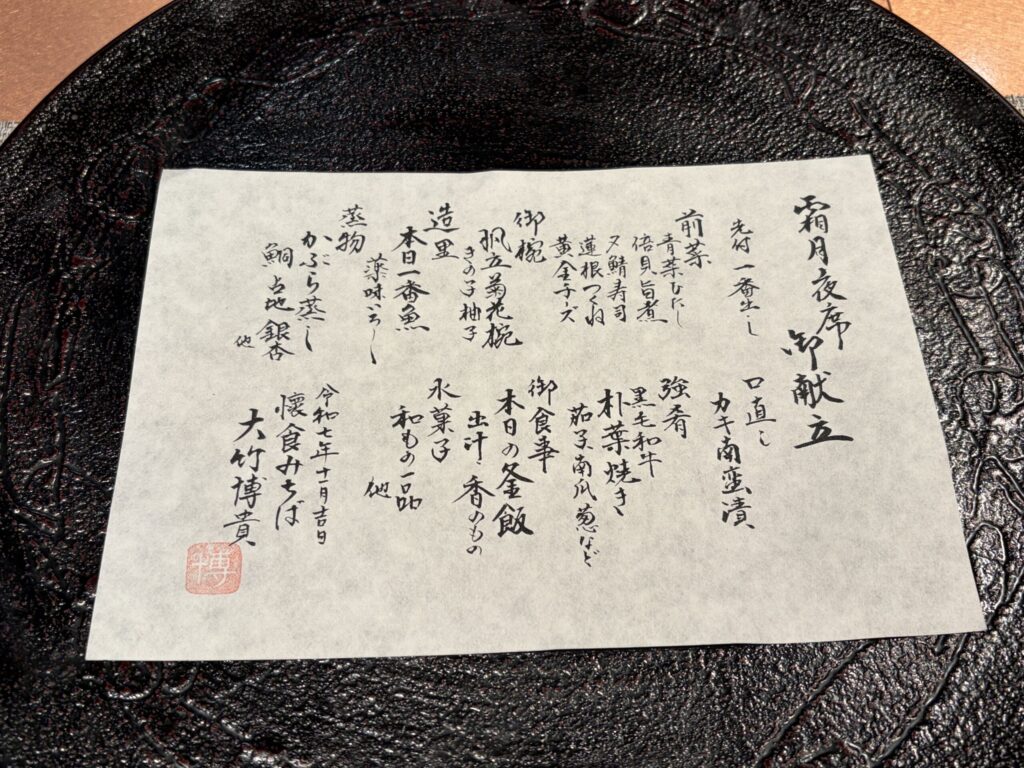 霜月夜席
御献立
先付 一番出し
前菜
青菜ひたし
倍貝旨煮
〆鯖寿司
蓮根つくね
黄金チーズ
御椀
帆立菊花椀
きの子柚子
造里
本日一番魚
薬味いろ〱
蒸物
かぶら蒸し
鯛占地銀杏
他
口直し
カキ南蛮漬
強肴
黒毛和牛
朴葉焼き
茄子南瓜葱など
御食事
本日の釜飯
出汁 香のもの
水菓子
和もの一品
他
令和七年十一月吉日
懐食みちば
大竹博貴
博